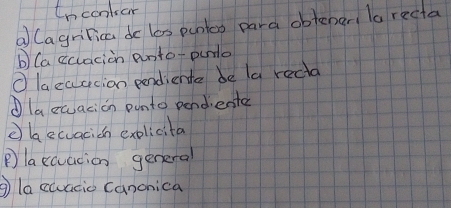 Encontrar
a) la grifica de los puntos para obtener la recta
b) la ecuación punto-punto
c) la ecuacion pendiente de la recta
d) la ecuación punto pendiente
e) la ecuación explicita
f) la ecuacion general
g) la ecuacio canonica